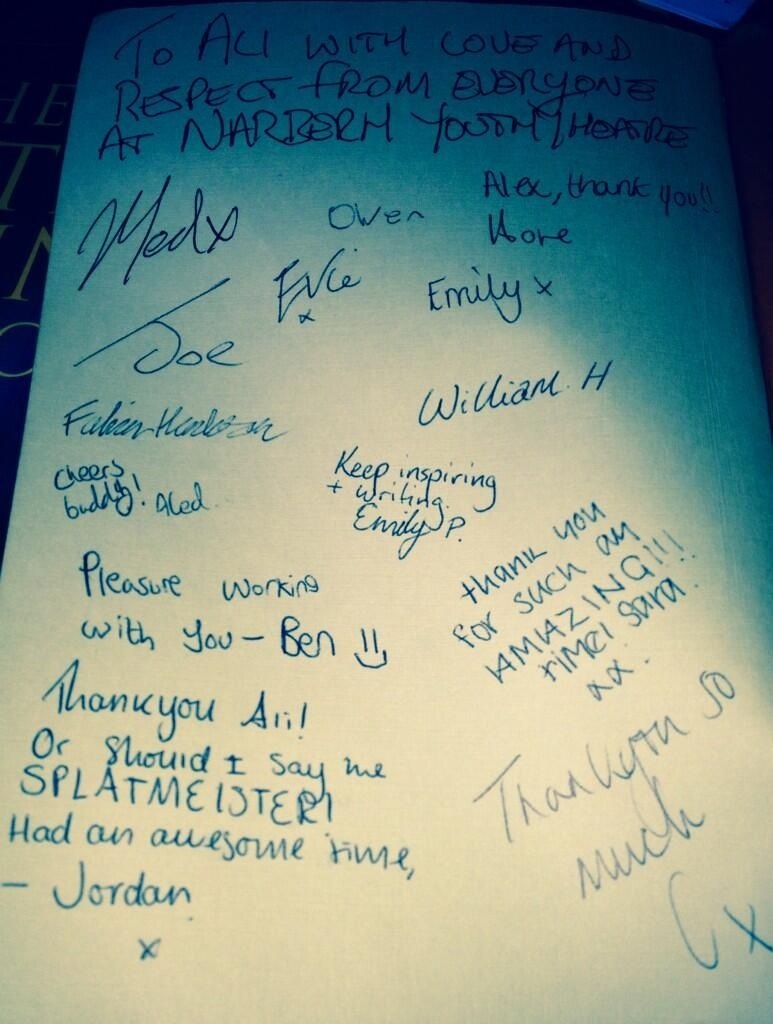 TO ALI WITH LOVE AND
RESPECT FROM EVERYONE
AT NARBERTH YOUTH THEATRE
Owen
Alex, thank you!!
Evie
x
Emily x
Joe
William H
Cheers
buddy! Aled.
Keep inspiring
+ writing.
Emily P.
Pleasure working
with you - Ben
thank you
for such an
AMAZING!!!
time! Sara.
xx.
Thankyou Ali!
Or should I say me
SPLATMEISTER!
Had an awesome time,
- Jordan
x
Thankyou so
much
C x